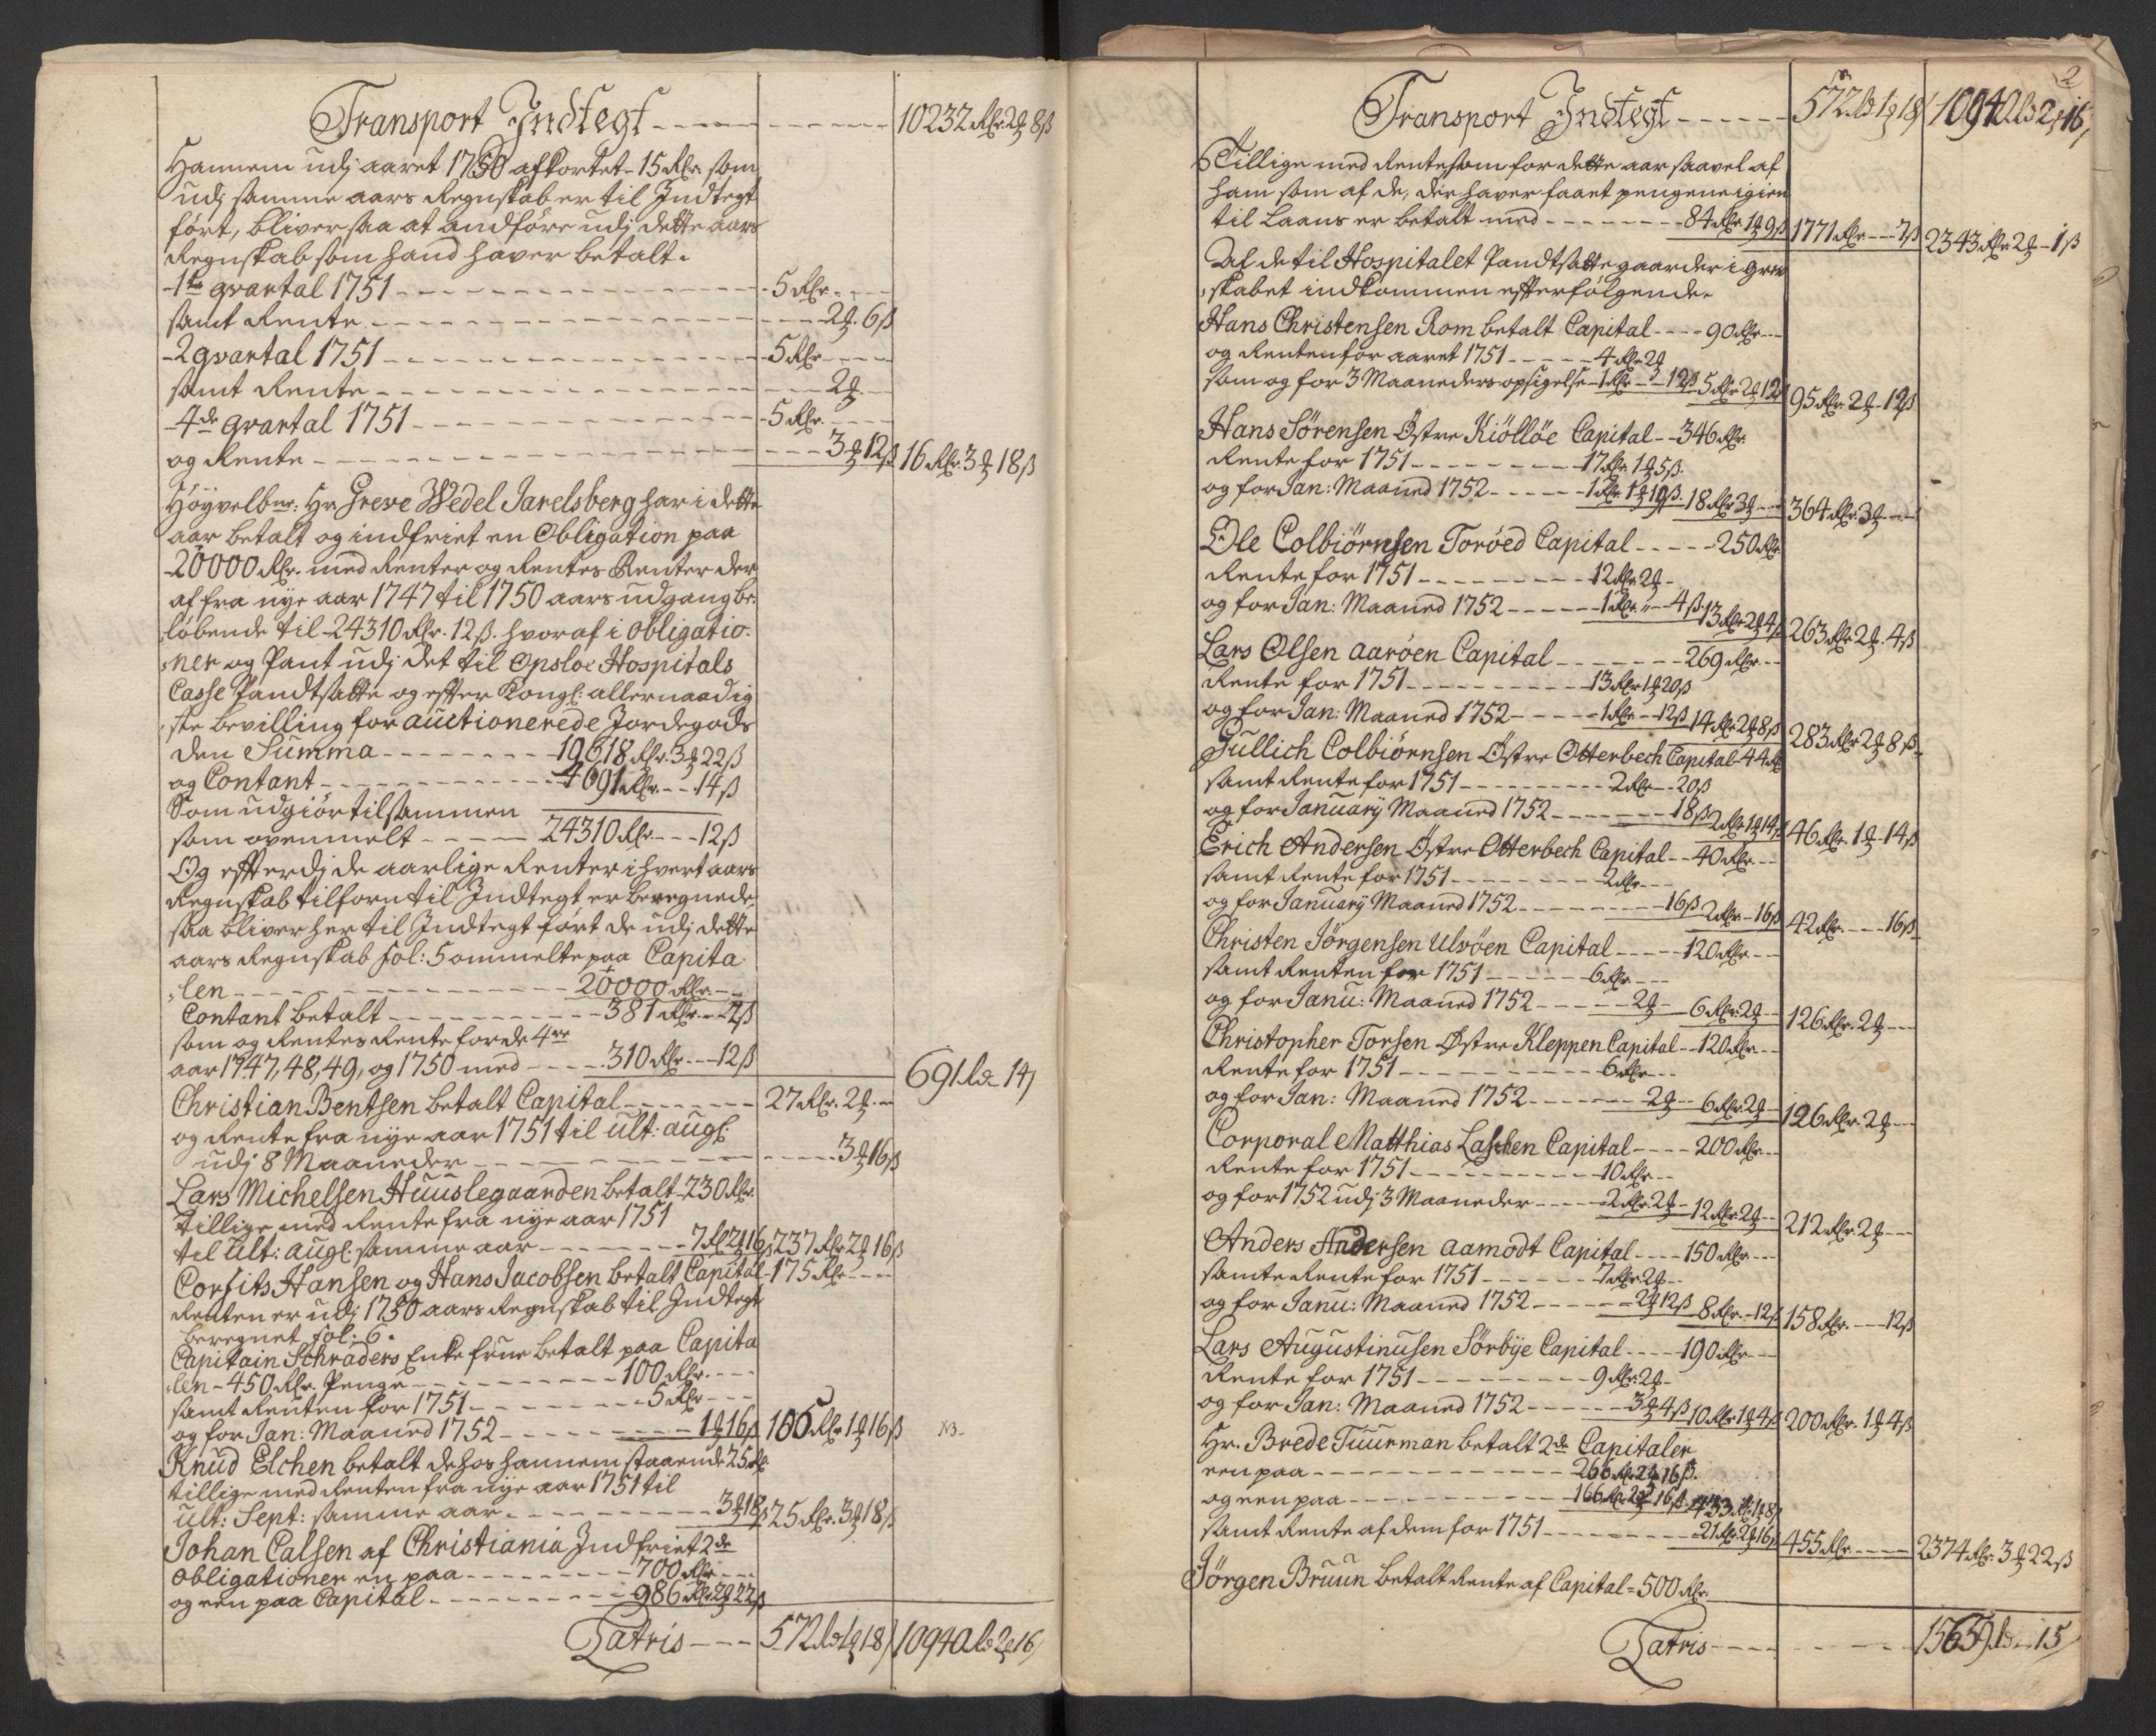 Transport Indtegt - - - - 10232 Rdr. 2 ꝗ 8 ß
Hannem udj aaret 1750 afkortet - 15 Rdr. som
udj samme aars Regnskab er til Indtegt
fört, bliver saa at andföre udj dette aars
Regnskab som hand haver betalt.
1te qvartal 1751 - - - 5 Rdr. - -
samt Rente - - - 2 ꝗ. 6 ß
2 qvartal 1751 - - - 5 Rdr. - -
samt Rente - - - 2 ꝗ. -
4de qvartal 1751 - - - 5 Rdr. - -
og Rente - - - 3 ꝗ 12 ß 16 Rdr. 3 ꝗ 18 ß
Höyvelbne: Hr Greve Wedel Jarelsberg har i dette
aar betalt og indfriet en Obligation paa
20000 Rdr. med Renter og Rentes Renter der
af fra nye aar 1747 til 1750 aars udgang be:
löbende til 24310 Rdr. 12 ß. hvoraf i obligatio:
:ner og Pant udj det til Opsloe Hospitals
Casse Pandtsatte og efter Kongl: allernaadig
:ste bevilling for auctionerede Jordegods
den Summa - - - 19618 Rdr. 3 ꝗ 22 ß
og Contant - - - 4691 Rdr. - - 14 ß
Som udgiör tilsammen
som ovenmelt - - - 24310 Rdr. - - 12 ß
Og efterdj de aarlige Renter i hvert aars
Regnskab tilforn til Indtegt er beregnede
saa bliver her til Indtegt fört de udj dette
aars Regnskab fol: 5 ommelte paa Capita
:len - - - 20000 Rdr. - -
Contant betalt - - - 381 Rdr. - - 2 ß
som og Rentes Rente for de 4re
aar 1747, 48, 49, og 1750 med - - - 310 Rdr. - - 12 ß
691 Rd - 14 ß
Christian Bentsen betalt Capital - - - 27 Rdr. 2 ꝗ. -
og Rente fra nye aar 1751 til ult: augl:
udj 8 Maaneder - - - 3 ꝗ 16 ß
Lars Michelsen Huuslegaarden betalt - 230 Rdr.
tillige med Rente fra nye aar 1751
til ult: augl: samme aar - - - 7 Rd 2 ꝗ 16 ß 237 Rdr 2 ꝗ 16 ß
Corfits Hansen og Hans Jacobsen betalt Capital - 175 Rdr. - -
Renten er udj 1750 aars Regnskab til Indtegt
beregnet fol: 6.
Capitain Schräders Enke frue betalt paa Capita
:len - 450 Rdr. Penge - - - 100 Rdr. - -
samt Renten for 1751 - - - 5 Rdr. - -
og for Jan: Maaned 1752 - - - 1 ꝗ 16 ß 105 Rdr 1 ꝗ 16 ß NB.
Knud Elchen betalt de hos hannem staaende 25 Rd.
tillige med Renten fra nye aar 1751 til
ult: Sept: samme aar - - - 3 ꝗ 18 ß 25 Rdr. 3 ꝗ 18 ß
Johan Calsen af Christiania Indfriet 2de
obligationer en paa - - - 700 Rdr. - -
og een paa Capital - - - 986 Rdr 2 ꝗ 22 ß
Latris - - - 572 Rd 1 ꝗ 18 ß 10940 Rd 2 ꝗ 16 ß
2
Transport Indtegt - - - 572 Rd 1 ꝗ 18 ß 10940 Rd 2 ꝗ 16 ß
Tillige med Rente som for dette aar saavel af
ham som af de, der haver faaet pengene igien
til Laans er betalt med - - - 84 Rdr. 1 ꝗ 9 ß 1771 Rdr. - - 7 ß 2343 Rdr. 2 ꝗ - 1 ß
Af de til Hospitalet Pandtsatte gaarder i Grev
:skabet indkommen efterfölgende
Hans Christensen Rom betalt Capital - - - 90 Rdr. - -
og Renten for aaret 1751 - - - 4 Rdr 2 ꝗ
som og for 3 Maaneders opsigelse - 1 Rdr. - 12 ß 5 Rdr 2 ꝗ 12 ß 95 Rdr. 2 ꝗ - 12 ß
Hans Sörensen Östre Kiölöe Capital - - 346 Rdr.
Rente for 1751 - - - 17 Rdr. 1 ꝗ 5 ß.
og for Jan: Maaned 1752 - - - 1 Rdr. 1 ꝗ 19 ß. 18 Rdr 3 ꝗ - - 364 Rdr. 3 ꝗ - -
Ole Colbiörnsen Toröed Capital - - - 250 Rdr.
Rente for 1751 - - - 12 Rdr 2 ꝗ -
og for Jan: Maaned 1752 - - - 1 Rdr. " - 4 ß. 13 Rdr 2 ꝗ 4 ß 263 Rdr 2 ꝗ. 4 ß
Lars Olsen Aaröen Capital - - - 269 Rdr. - -
Rente for 1751 - - - 13 Rdr 1 ꝗ 20 ß
og for Jan: Maaned 1752 - - - 1 Rdr. - - 12 ß 14 Rdr. 2 ꝗ 8 ß 283 Rdr 2 ꝗ 8 ß.
Gullich Colbiörnsen Östre Otterbech Capital - 44 Rd
samt Rente for 1751 - - - 2 Rdr. - - 20 ß
og for Januarij Maaned 1752 - - - 18 ß 2 Rdr 1 ꝗ 14 ß 46 Rdr. 1 ꝗ - 14 ß
Erich Andersen Östre Otterbech Capital - - 40 Rdr. - -
samt Rente for 1751 - - - 2 Rdr. - -
og for Januarij Maaned 1752 - - - 16 ß 2 Rdr. - 16 ß 42 Rdr. - - 16 ß
Christen Jörgensen Ulvöen Capital - - - 120 Rdr. - -
samt Renten for 1751 - - - 6 Rdr. - -
og for Janu: Maaned 1752 - - - 2 ꝗ - 6 Rdr. 2 ꝗ - 126 Rdr. 2 ꝗ - -
Christopher Torsen Östre Kleppen Capital - - 120 Rdr. - -
Rente for 1751 - - - 6 Rdr. - -
og for Jan: Maaned 1752 - - - 2 ꝗ - 6 Rdr. 2 ꝗ - 126 Rdr. 2 ꝗ - -
Corporal Matthias Laschen Capital - - - 200 Rdr. - -
Rente for 1751 - - - 10 Rdr. - -
og for 1752 udj 3 Maaneder - - - 2 Rdr. 2 ꝗ - 12 Rdr. 2 ꝗ - 212 Rdr. 2 ꝗ - -
Anders Andersen Aamodt Capital - - - 150 Rdr. - -
samt Rente for 1751 - - - 7 Rdr 2 ꝗ - -
og for Janu: Maaned 1752 - - - 2 ꝗ 12 ß 8 Rdr. - 12 ß 158 Rdr. - - 12 ß
Lars Augustinusen Sörbye Capital - - - 190 Rdr. - -
Rente for 1751 - - - 9 Rdr. 2 ꝗ -
og for Jan: Maaned 1752 - - - 3 ꝗ 4 ß 10 Rdr 1 ꝗ 4 ß 200 Rdr. 1 ꝗ 4 ß
Hr. Brede Tuurman betalt 2de Capitaler
een paa - - - 266 Rdr 2 ꝗ 16 ß.
og een paa - - - 166 Rdr 2 ꝗ 16 ß 433 Rdr 1 ꝗ 8 ß
samt Rente af dem for 1751 - - - 21 Rdr. 2 ꝗ 16 ß 455 Rdr. - - 2374 Rdr. 3 ꝗ 22 ß
Jörgen Bruun betalt Rente af Capital - 500 Rdr.
Latris - - - 15659 Rd - 15 ß